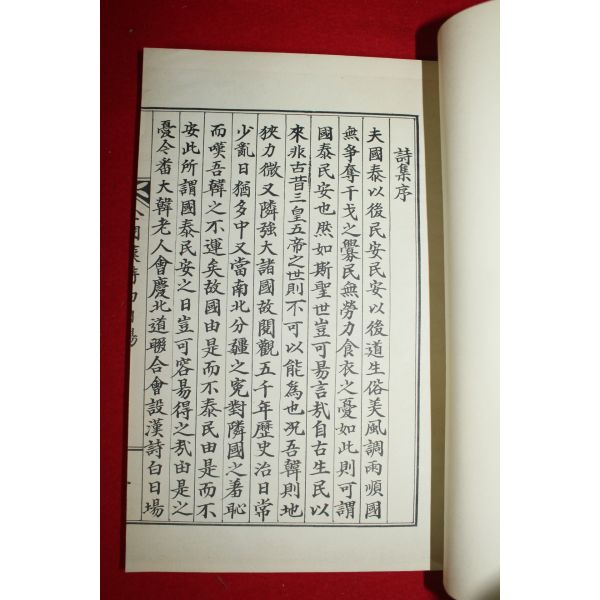 詩集序
夫國泰以後民安民安以後道生俗美風調雨順國
無爭奪干戈之釁民無勞力食衣之憂如此則可謂
國泰民安也然如斯聖世豈可易言哉自古生民以
來非古昔三皇五帝之世則不可以能為也况吾韓則地
狹力微又隣強大諸國故閱觀五千年歷史治日常
少亂日猶多中又當南北分疆之寃對隣國之羞恥
而嘆吾韓之不運矣故國由是而不泰民由是而不
安此所謂國泰民安之日豈可容易得之哉由是之
憂今番大韓老人會慶北道聯合會設漢詩白日場